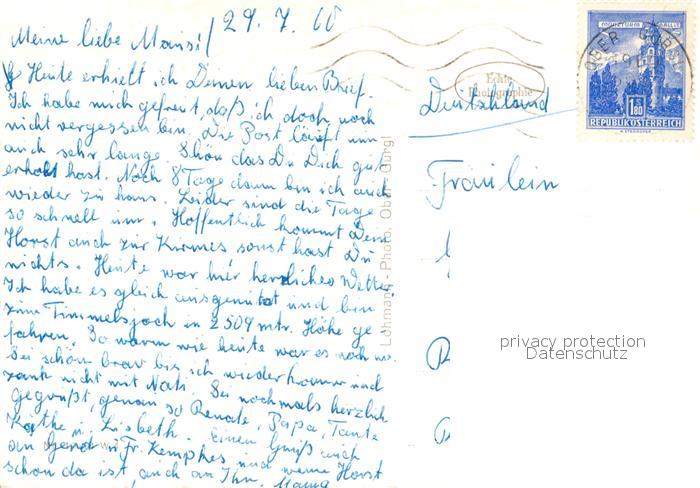 29. 7. 60
Meine liebe Mausi!
Heute erhielt ich Deinen lieben Brief.
Ich habe mich gefreut, daß ich doch noch
nicht vergessen bin. Die Post läuft nun
auch sehr lange. Schön das Du Dich gut
erholt hast. Noch 8 Tage dann bin ich auch
wieder zu haus. Leider sind die Tage
so schnell um. Hoffentlich kommt Dein
Horst auch zur Kirmes sonst hast Du
nichts. Heute war hier herrliches Wetter.
Ich habe es gleich ausgenützt und bin
zum Timmelsjoch in 2509 mtr. Höhe ge
fahren. So warm wie heute war es noch nie.
Sei schön brav bis ich wiederkomm und
zank nicht mit Nati. Sei nochmals herzlich
gegrüßt, genau so Renate, Papa, Tante
Käthe u. Lisbeth. Einen Gruß auch
an Gerd u. Fr. Kempkes und wenn Horst
schon da ist, auch an Ihn. Mama
Lohmann - Photo, Ober Gurgl
Echte
Photographie
Deutschland
Fräulein
OBER GURGL
1.80
REPUBLIK ÖSTERREICH
privacy protection
Datenschutz